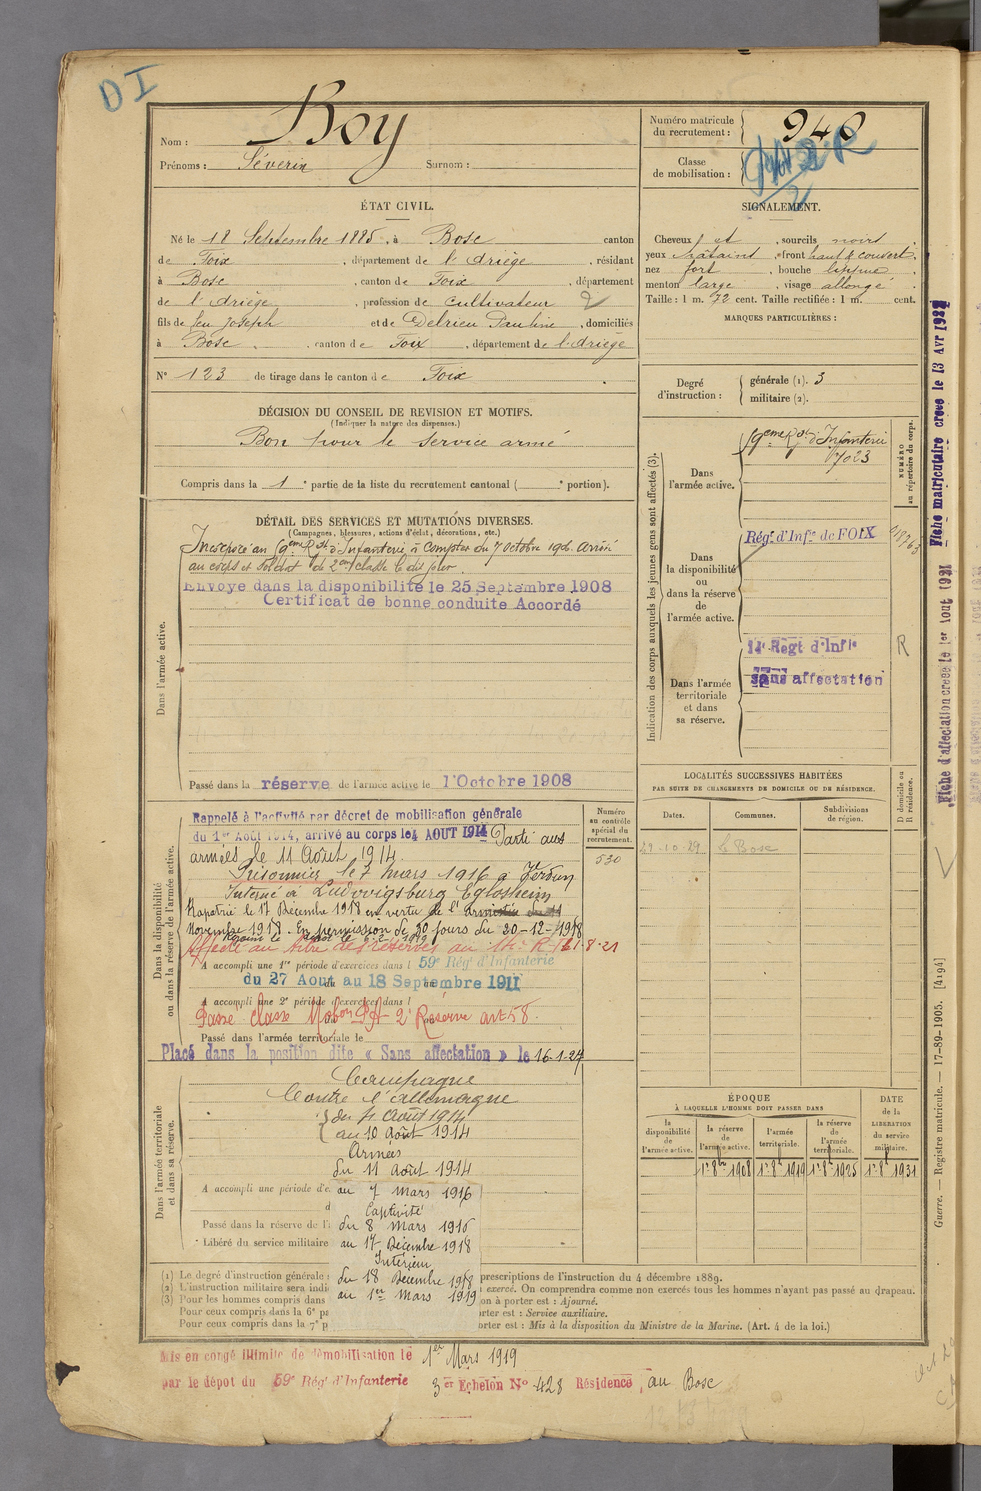 DI
Nom : Boy
Prénoms : Séverin Surnom :
Numéro matricule du recrutement : 940
Classe de mobilisation :
ÉTAT CIVIL.
Né le 18 Septembre 1885, à Bosc canton
de Foix, département de l'Ariège, résidant
à Bosc, canton de Foix, département
de l'Ariège, profession de cultivateur 2
fils de feu Joseph et de Delrieu Pauline, domiciliés
à Bosc, canton de Foix, département de l'Ariège
N° 123 de tirage dans le canton de Foix
SIGNALEMENT.
Cheveux et, sourcils noirs
yeux châtains, front haut & couvert,
nez fort, bouche,
menton large, visage allongé
Taille : 1 m. 72 cent. Taille rectifiée : 1 m. cent.
MARQUES PARTICULIÈRES :
Degré d'instruction : générale (1). 3
militaire (2).
DÉCISION DU CONSEIL DE REVISION ET MOTIFS.
(Indiquer la nature des dispenses.)
Bon pour le service armé
Compris dans la 1e partie de la liste du recrutement cantonal ( e portion).
DÉTAIL DES SERVICES ET MUTATIONS DIVERSES.
(Campagnes, blessures, actions d'éclat, décorations, etc.)
Dans l'armée active.
Incorporé au 9eme Rgt d'Infanterie à compter du 7 octobre 1906. Arrivé
au corps et soldat de 2eme classe le dit jour.
Envoyé dans la disponibilité le 25 Septembre 1908
Certificat de bonne conduite Accordé
Passé dans la réserve de l'armée active le 1 Octobre 1908
Indication des corps auxquels les jeunes gens sont affectés (3).
NUMÉRO au répertoire du corps.
Dans l'armée active.
9eme Rgt d'Infanterie
7023
Dans la disponibilité ou dans la réserve de l'armée active.
Rég. d'Infie de FOIX
Dans l'armée territoriale et dans sa réserve.
14e Regt d'Infie
R
sans affectation
LOCALITÉS SUCCESSIVES HABITÉES
PAR SUITE DE CHANGEMENTS DE DOMICILE OU DE RÉSIDENCE.
D domicile ou R résidence.
Dates. Communes. Subdivisions de région.
29-10-29 Le Bosc
Dans la disponibilité ou dans la réserve de l'armée active.
Numéro au contrôle spécial du recrutement.
530
Rappelé à l'activité par décret de mobilisation générale
du 1er Août 1914, arrivé au corps le 4 AOUT 1914 Parti aux
armées le 11 Août 1914.
Prisonnier le 7 mars 1916 à Verdun
Interné à Ludwigsburg Eglosheim
Rapatrié le 17 Décembre 1918 en vertu de l'armistice du 11
Novembre 1918. En permission de 30 jours du 30-12-1918
Affecté au titre des réserves au 14e R.I 1 8-21
A accompli une 1re période d'exercices dans l 59e Rég' d'Infanterie
du 27 Aout au 18 Septembre 1911
A accompli une 2e période d'exercices dans l
Passé classe Mobon 2e Réserve art 58.
Passé dans l'armée territoriale le
Placé dans la position dite « Sans affectation » le 16-1-27
Dans l'armée territoriale et dans sa réserve.
Campagne
Contre l'allemagne
du 4 Août 1914
au 10 Août 1914
Armées
du 11 Août 1914
A accompli une période d'e
au 7 mars 1916
Captivité
Passé dans la réserve de l'
du 8 mars 1916
Libéré du service militaire
au 17 Décembre 1918
Intérieur
du 18 Décembre 1918
au 1er Mars 1919
ÉPOQUE
À LAQUELLE L'HOMME DOIT PASSER DANS
DATE de la LIBÉRATION du service militaire.
la disponibilité de l'armée active. la réserve de l'armée active. l'armée territoriale. la réserve de l'armée territoriale.
1er 8bre 1908 1er 8bre 1919 1er 8bre 1925 1er 8bre 1931
(1) Le degré d'instruction générale prescriptions de l'instruction du 4 décembre 1889.
(2) L'instruction militaire sera indi exercé. On comprendra comme non exercés tous les hommes n'ayant pas passé au drapeau.
(3) Pour les hommes compris dans on à porter est : Ajourné.
Pour ceux compris dans la 6e pa orter est : Service auxiliaire.
Pour ceux compris dans la 7e p orter est : Mis à la disposition du Ministre de la Marine. (Art. 4 de la loi.)
Mis en congé illimité de démobilisation le 1er Mars 1919
par le dépot du 59e Rég' d'Infanterie 3er Echelon N° 428 Résidence, au Bosc
Fiche d'affectation créée le 1er Aout 1921 Fiche matriculaire créée le 13 Avr 1927
Guerre. — Registre matricule. — 17-89-1905. [4194]